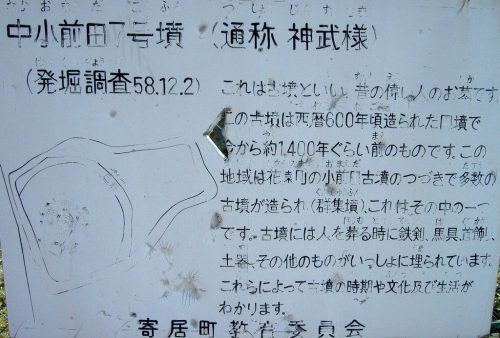 中小前田7号墳 (通称 神武様)
(発掘調査58.12.2)
これは古墳といい、昔の偉い人のお墓です
この古墳は西暦600年頃造られた円墳で
今から約1,400年ぐらい前のものです。この
地域は花園町の小前田古墳のつづきで多数の
古墳が造られ(群集墳)、これはその中の一つ
です。古墳には人を葬る時に鉄剣、馬具、首飾、
土器、その他のものがいっしょに埋られています。
これらによって古墳の時期や文化及び生活が
わかります。
寄居町教育委員会